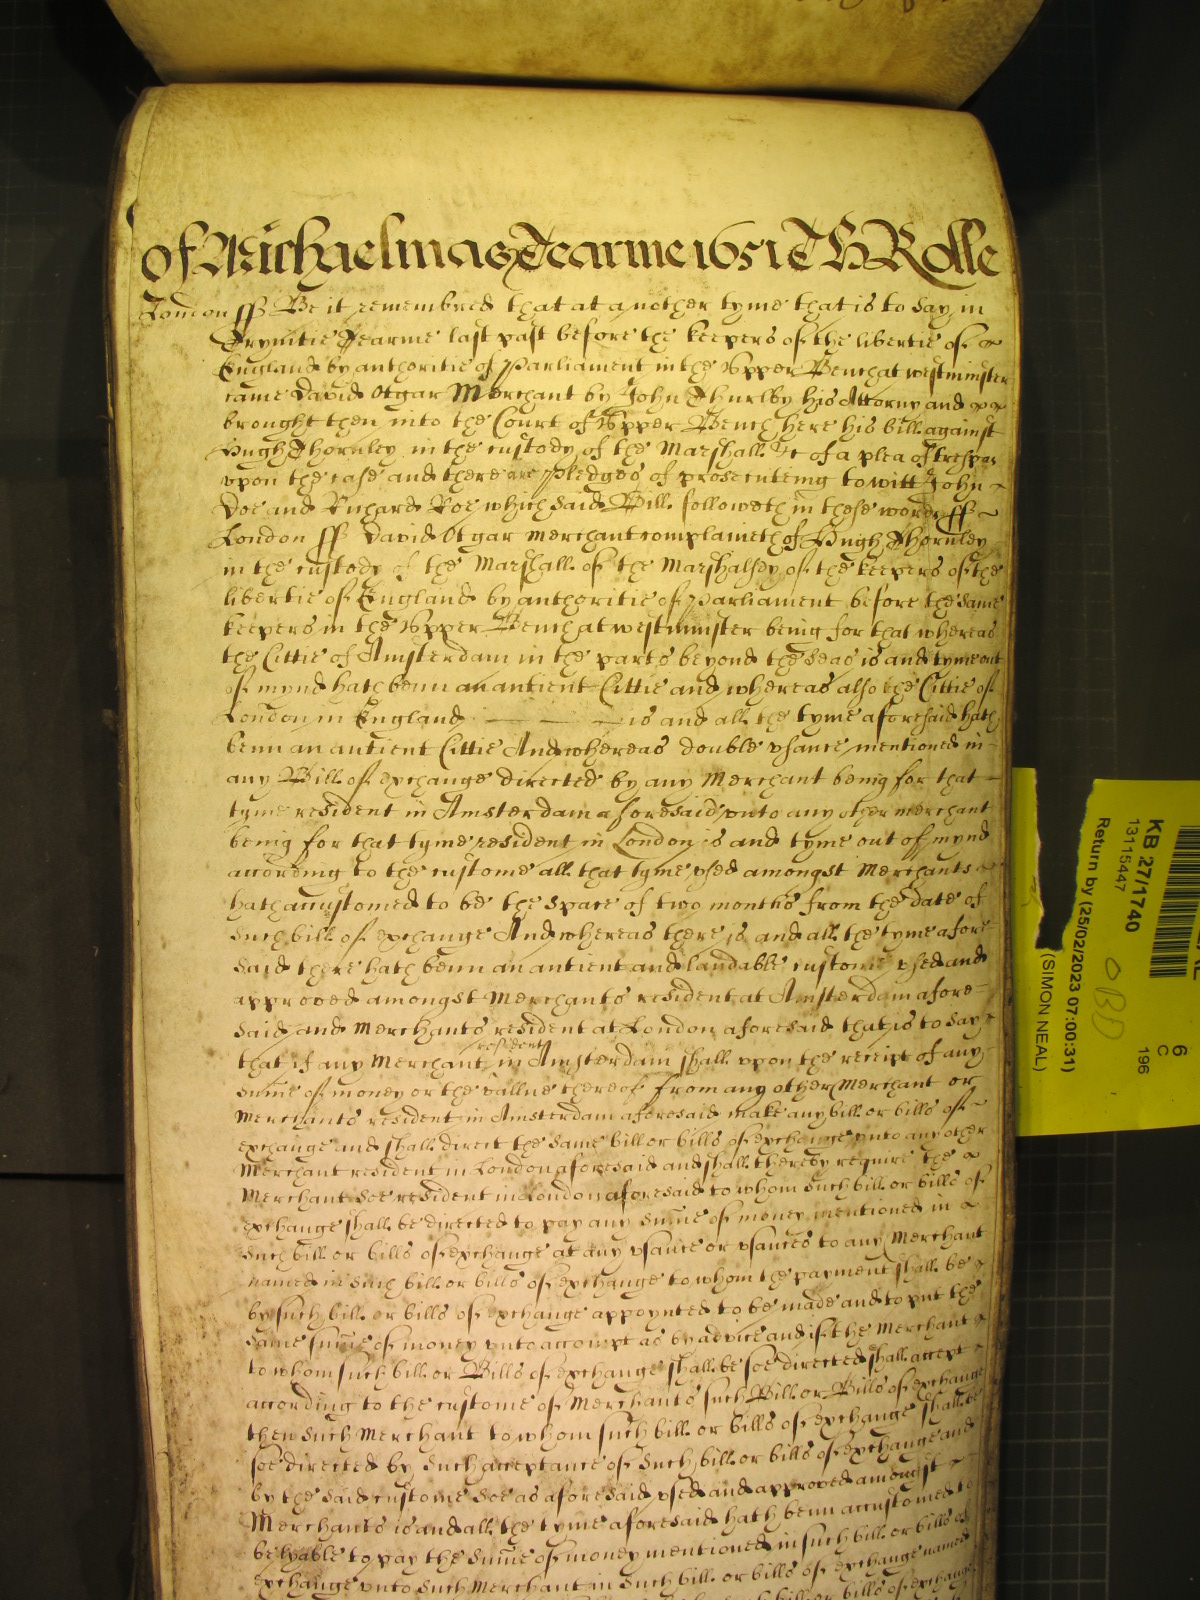 Of Michaelmas Tearme 1651 Th Rolle
London ss Be it remembred that at another tyme that is to say in
Trynitie Tearme last past before the keepers of the libertie of
England by authoritie of Parliament in the Upper Bench at westminster
came David Otgar Merchant by John Thurlby his Attorny and
brought then into the Court of Upper Bench here his bill against
Hugh Thornley in the custody of the Marshall &c of a plea of trespas
upon the case and there are Pledges of prosecuteing to witt John
Doe and Richard Roe which said Bill followeth in these words ss
London ss David Otgar merchant complaineth of Hugh Thornley
in the custody of the Marshall of the Marshalsey of the keepers of the
libertie of England by authoritie of Parliament before the same
keepers in the Upper Bench at westminster being for that whereas
the Cittie of Amsterdam in the parts beyond the seas is and tyme out
of mynd hath benn an antient Cittie and whereas also the Cittie of
London in England is and all the tyme aforesaid hath
benn an antient Cittie And whereas double usance mentioned in
any Bill of exchange directed by any Merchant being for that
tyme resident in Amsterdam aforesaid unto any other merchant
being for that tyme resident in London is and tyme out of mynd
according to the custome all that tyme used amongst Merchants
hath accustomed to be the space of two months from the date of
such bill of exchange And whereas there is and all the tyme afore-
said there hath benn an antient and laudable custome used and
approved amongst Merchants resident at Amsterdam afore-
said and Merchants resident at London aforesaid that is to say
that if any Merchant resident in Amsterdam shall upon the receipt of any
sume of money or the vallue thereof from any other Merchant or
Merchants resident in Amsterdam aforesaid make any bill or bills of
exchange and shall direct the same bill or bills of exchange unto any other
Merchant resident in London aforesaid and shall thereby require the
Merchant soe resident in London aforesaid to whom such bill or bills of
exchange shall be directed to pay any sume of money mentioned in
such bill or bills of exchange at any usance or usances to any Merchant
named in such bill or bills of exchange to whom the payment shall be
by such bill or bills of exchange appoynted to be made and to put the
same sume of money unto accompt as by advice and if the Merchant
to whom such bill or Bills of exchange shall be soe directed shall accept
according to the custome of Merchants such Bill or Bills of exchange
then such Merchant to whom such bill or bills of exchange shall be
soe directed by such acceptance of such bill or bills of exchange and
by the said custome soe as aforesaid used and approved amongst
Merchants is and all the tyme aforesaid hath benn accustomed to
be lyable to pay the sume of money mentioned in such bill or bills of
exchange unto such Merchant in such bill or bills of exchange named
KB 27/1740
13115447
Return by (25/02/2023 07:00:31)
(SIMON NEAL)
OBD
6
C
196